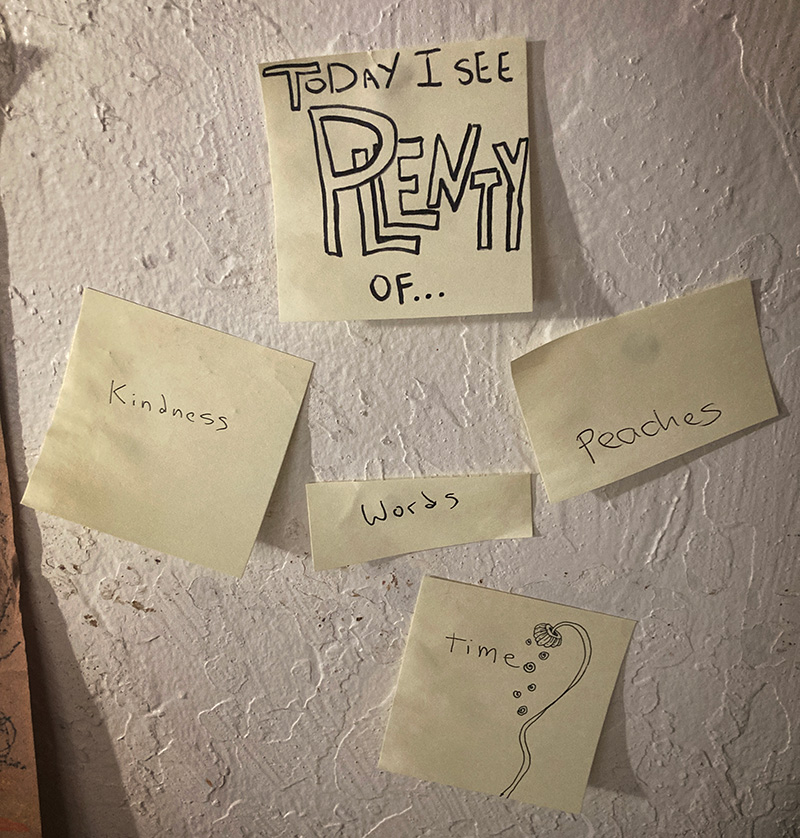 TODAY I SEE
PLENTY
OF...
Kindness
Peaches
Words
Time